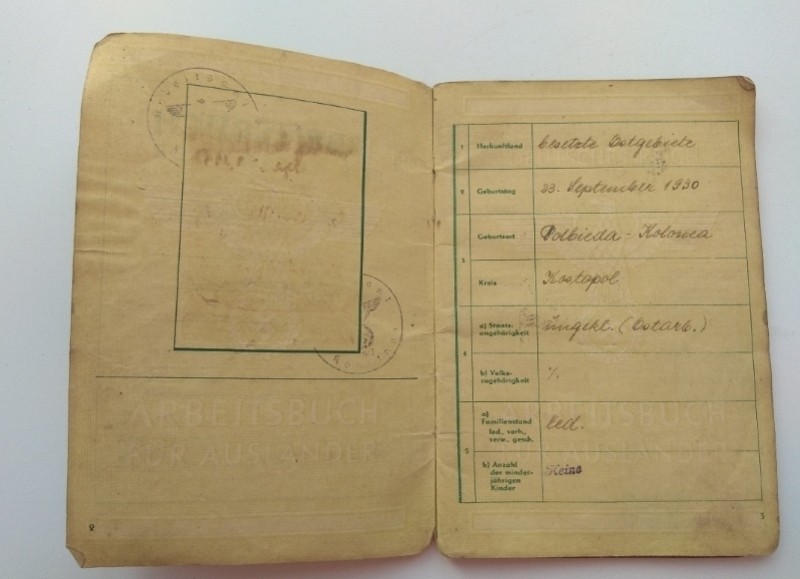 ARBEITSBUCH
FÜR AUSLÄNDER
2
1 Herkunftland besetzte Ostgebiete
2 Geburtstag 23. September 1930
3 Geburtsort
Kreis Kostopol
4 a) Staats-
angehörigkeit ungekl. (Ostarb.)
b) Volks-
zugehörigkeit ./.
5 a)
Familienstand led.
led., verh.,
verw., gesch.
b) Anzahl
der minder-
jährigen
Kinder Keine
ARBEITSBUCH
FÜR AUSLÄNDER
3